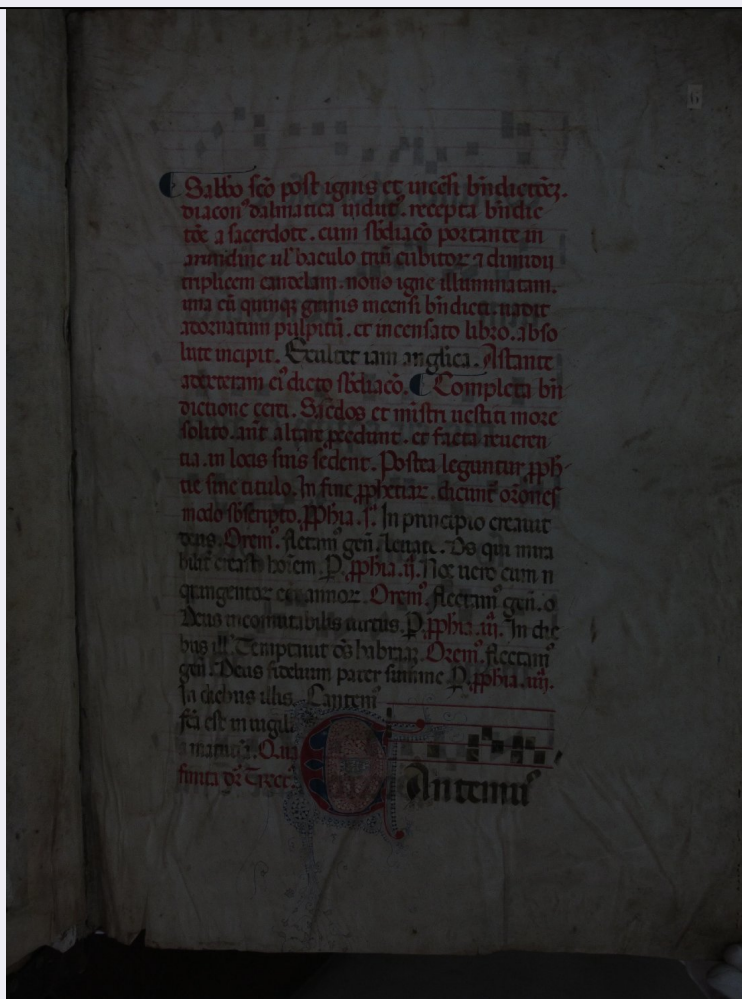 6
Sabbo sco post ignis et incensi bndictoez.
diacon9 dalmatica indut9. recepta bndic
toe a sacerdote. cum sbdiaco portante in
arundine ul' baculo triu cubitoz ⁊ dimidii
triplicem candelam. nouo igne illuminatam.
una cu quinqz granis incensi bndicti. uadit
ad ornatum pulpitu. et incensato libro. abso
lute incipit. Exultet iam anglica. Astante
ad exteram ei9 dicto sbdiaco. Completa bn
dictione cerei. Sacdos et mistri uestiti more
solito. ant altare pcedunt. et facta reueren
tia. in locis suis sedent. Postea leguntur pph
tie sine titulo. In fine pphetiaz. dicunt oroes
modo sbscripto. pphia. i. In principio creauit
deus. Orem9. flectam9 gen. leuate. Ds qui mira
bilit creasti hoiem. P. pphia. ii. Noe uero cum
quingentoz eet annoz. Orem9. flectam9 gen.
Deus incomutabilis uirtus. P. pphia. iii. In die
bus ill'. Temptauit ds habraaz. Orem9. flectam9
gen. Deus fidelium pater sumine P. pphia. iiii.
In diebus illis. Cantem9
fca est in uigili
a matuta. Qua
finita dr Tract9.
CAntemu9